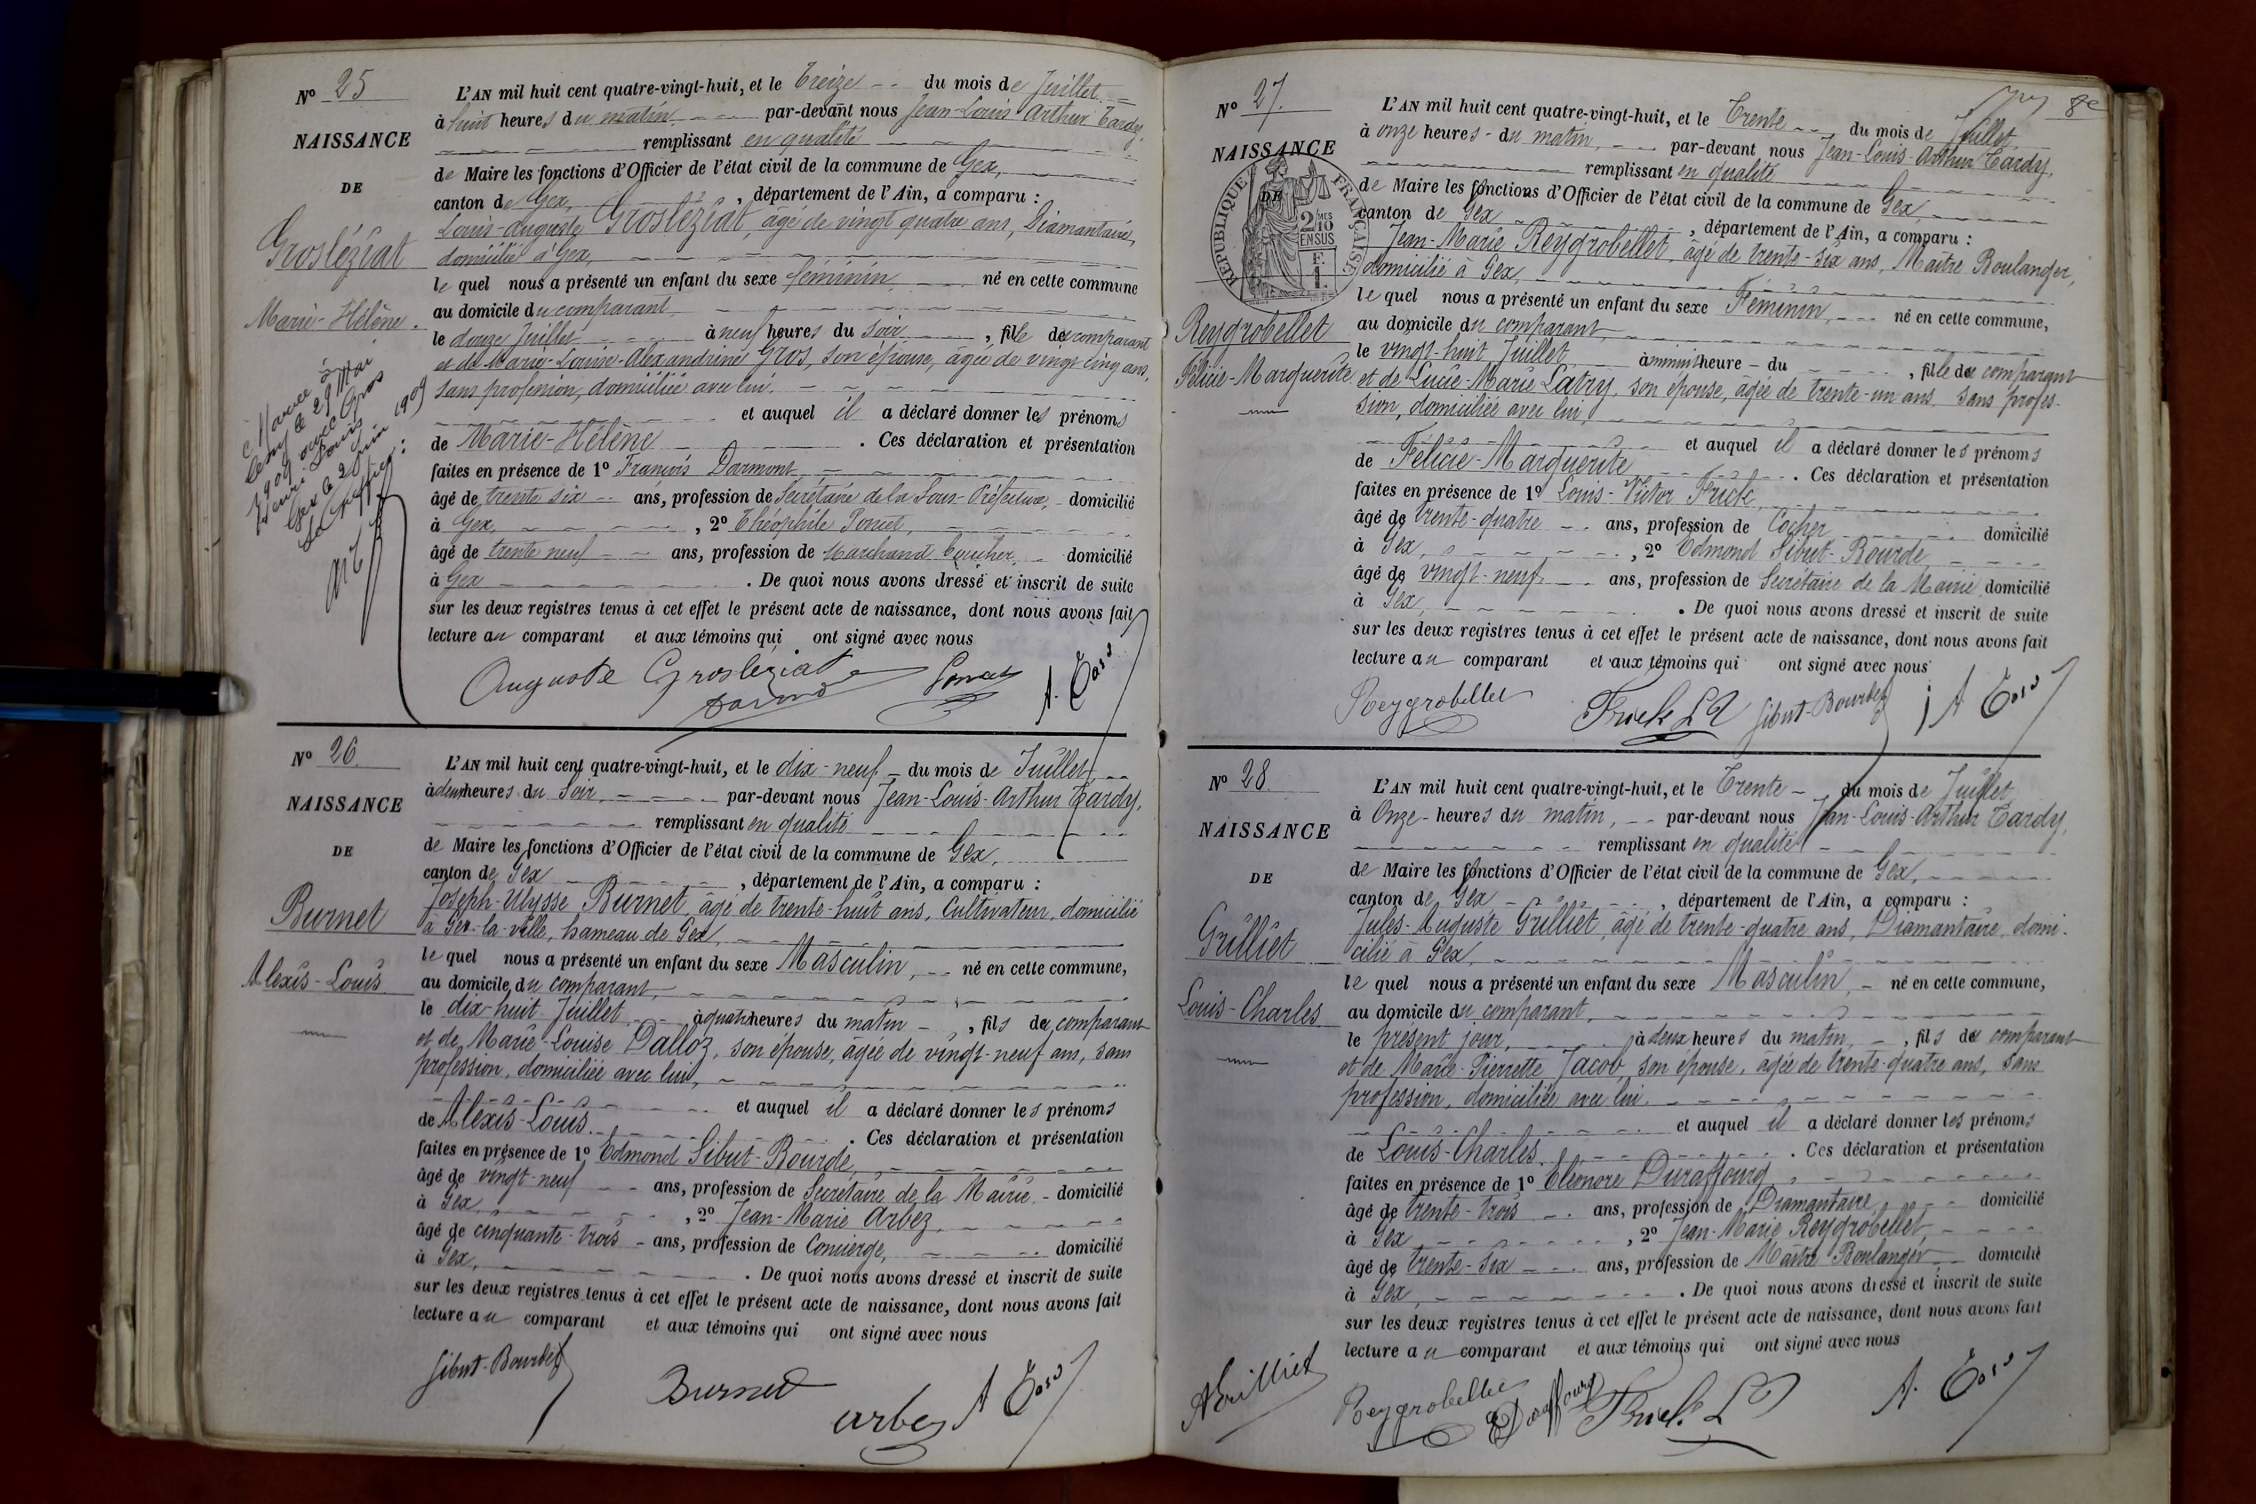 N° 25
NAISSANCE
DE
Grosléziat
Marie-Hélène.
Mariée à
le 29 Mai
1909 avec Gros
Henri Louis
Gex le 2 Juin 1909
Le Greffier :
L'AN mil huit cent quatre-vingt-huit, et le Treize du mois de Juillet
à huit heures du matin, par-devant nous Jean-Louis Arthur Tardy,
remplissant en qualité
de Maire les fonctions d'Officier de l'état civil de la commune de Gex,
canton de Gex, département de l'Ain, a comparu :
Louis-Auguste Grosléziat, âgé de vingt quatre ans, Diamantaire,
domicilié à Gex,
le quel nous a présenté un enfant du sexe féminin, né en cette commune
au domicile du comparant,
le douze Juillet à neuf heures du soir, fille du comparant
et de Marie-Louise-Alexandrine Gros, son épouse, âgée de vingt cinq ans,
sans profession, domiciliée avec lui.
et auquel il a déclaré donner les prénoms
de Marie-Hélène. Ces déclaration et présentation
faites en présence de 1° François Darmont,
âgé de trente six ans, profession de Secrétaire de la Sous-Préfecture, domicilié
à Gex, 2° Théophile Poncet,
âgé de trente neuf ans, profession de Marchand boucher, domicilié
à Gex. De quoi nous avons dressé et inscrit de suite
sur les deux registres tenus à cet effet le présent acte de naissance, dont nous avons fait
lecture au comparant et aux témoins qui ont signé avec nous
Auguste Grosleziat Poncet A. Tardy
N° 26
NAISSANCE
DE
Burnet
Alexis-Louis
L'AN mil huit cent quatre-vingt-huit, et le dix-neuf du mois de Juillet,
à deux heures du Soir, par-devant nous Jean-Louis-Arthur Tardy,
remplissant en qualité
de Maire les fonctions d'Officier de l'état civil de la commune de Gex,
canton de Gex, département de l'Ain, a comparu :
Joseph-Ulysse Burnet, âgé de trente-huit ans, Cultivateur, domicilié
à Gex-la-ville, hameau de Gex,
le quel nous a présenté un enfant du sexe Masculin, né en cette commune,
au domicile du comparant,
le dix-huit Juillet à quatre heures du matin, fils du comparant
et de Marie-Louise Dalloz, son épouse, âgée de vingt-neuf ans, sans
profession, domiciliée avec lui,
et auquel il a déclaré donner les prénoms
de Alexis-Louis. Ces déclaration et présentation
faites en présence de 1° Edmond Sibut-Bourde,
âgé de vingt-neuf ans, profession de Secrétaire de la Mairie domicilié
à Gex, 2° Jean-Marie Arbez,
âgé de cinquante-trois ans, profession de Concierge, domicilié
à Gex. De quoi nous avons dressé et inscrit de suite
sur les deux registres tenus à cet effet le présent acte de naissance, dont nous avons fait
lecture au comparant et aux témoins qui ont signé avec nous
Sibut-Bourde Burnet Arbez A Tardy
8e
N° 27.
NAISSANCE
DE
RÉPUBLIQUE FRANÇAISE
2 MES
10
EN SUS
F.
1.
Reygrobellet
Félicie-Marguerite
L'AN mil huit cent quatre-vingt-huit, et le Trente du mois de Juillet
à onze heures du matin, par-devant nous Jean-Louis-Arthur Tardy,
remplissant en qualité
de Maire les fonctions d'Officier de l'état civil de la commune de Gex,
canton de Gex, département de l'Ain, a comparu :
Jean-Marie Reygrobellet, âgé de trente-six ans, Maître Boulanger,
domicilié à Gex,
le quel nous a présenté un enfant du sexe Féminin, né en cette commune,
au domicile du comparant,
le vingt-huit Juillet à minuit heure du, fille du comparant
et de Lucie-Marie Latry, son épouse, âgée de trente-un ans, sans profes-
sion, domiciliée avec lui,
et auquel il a déclaré donner les prénoms
de Félicie-Marguerite. Ces déclaration et présentation
faites en présence de 1° Louis-Victor Frick,
âgé de trente-quatre ans, profession de Cocher domicilié
à Gex, 2° Edmond Sibut-Bourde,
âgé de vingt-neuf ans, profession de Secrétaire de la Mairie domicilié
à Gex. De quoi nous avons dressé et inscrit de suite
sur les deux registres tenus à cet effet le présent acte de naissance, dont nous avons fait
lecture au comparant et aux témoins qui ont signé avec nous
Reygrobellet Frick L V Sibut-Bourde A Tardy
N° 28
NAISSANCE
DE
Grilliet
Louis-Charles
L'AN mil huit cent quatre-vingt-huit, et le Trente du mois de Juillet
à Onze heures du matin, par-devant nous Jean-Louis-Arthur Tardy,
remplissant en qualité
de Maire les fonctions d'Officier de l'état civil de la commune de Gex,
canton de Gex, département de l'Ain, a comparu :
Jules-Auguste Grilliet, âgé de trente-quatre ans, Diamantaire, domi-
cilié à Gex,
le quel nous a présenté un enfant du sexe Masculin, né en cette commune,
au domicile du comparant,
le présent jour, à deux heures du matin, fils du comparant
et de Marie-Pierrette Jacob, son épouse, âgée de trente-quatre ans, sans
profession, domiciliée avec lui
et auquel il a déclaré donner les prénoms
de Louis-Charles. Ces déclaration et présentation
faites en présence de 1° Eléonore Duraffourg,
âgé de trente-trois ans, profession de Diamantaire, domicilié
à Gex, 2° Jean-Marie Reygrobellet,
âgé de trente-six ans, profession de Maître Boulanger domicilié
à Gex. De quoi nous avons dressé et inscrit de suite
sur les deux registres tenus à cet effet le présent acte de naissance, dont nous avons fait
lecture au comparant et aux témoins qui ont signé avec nous
A Grilliet Reygrobellet E Duraffourg Frick L V A. Tardy